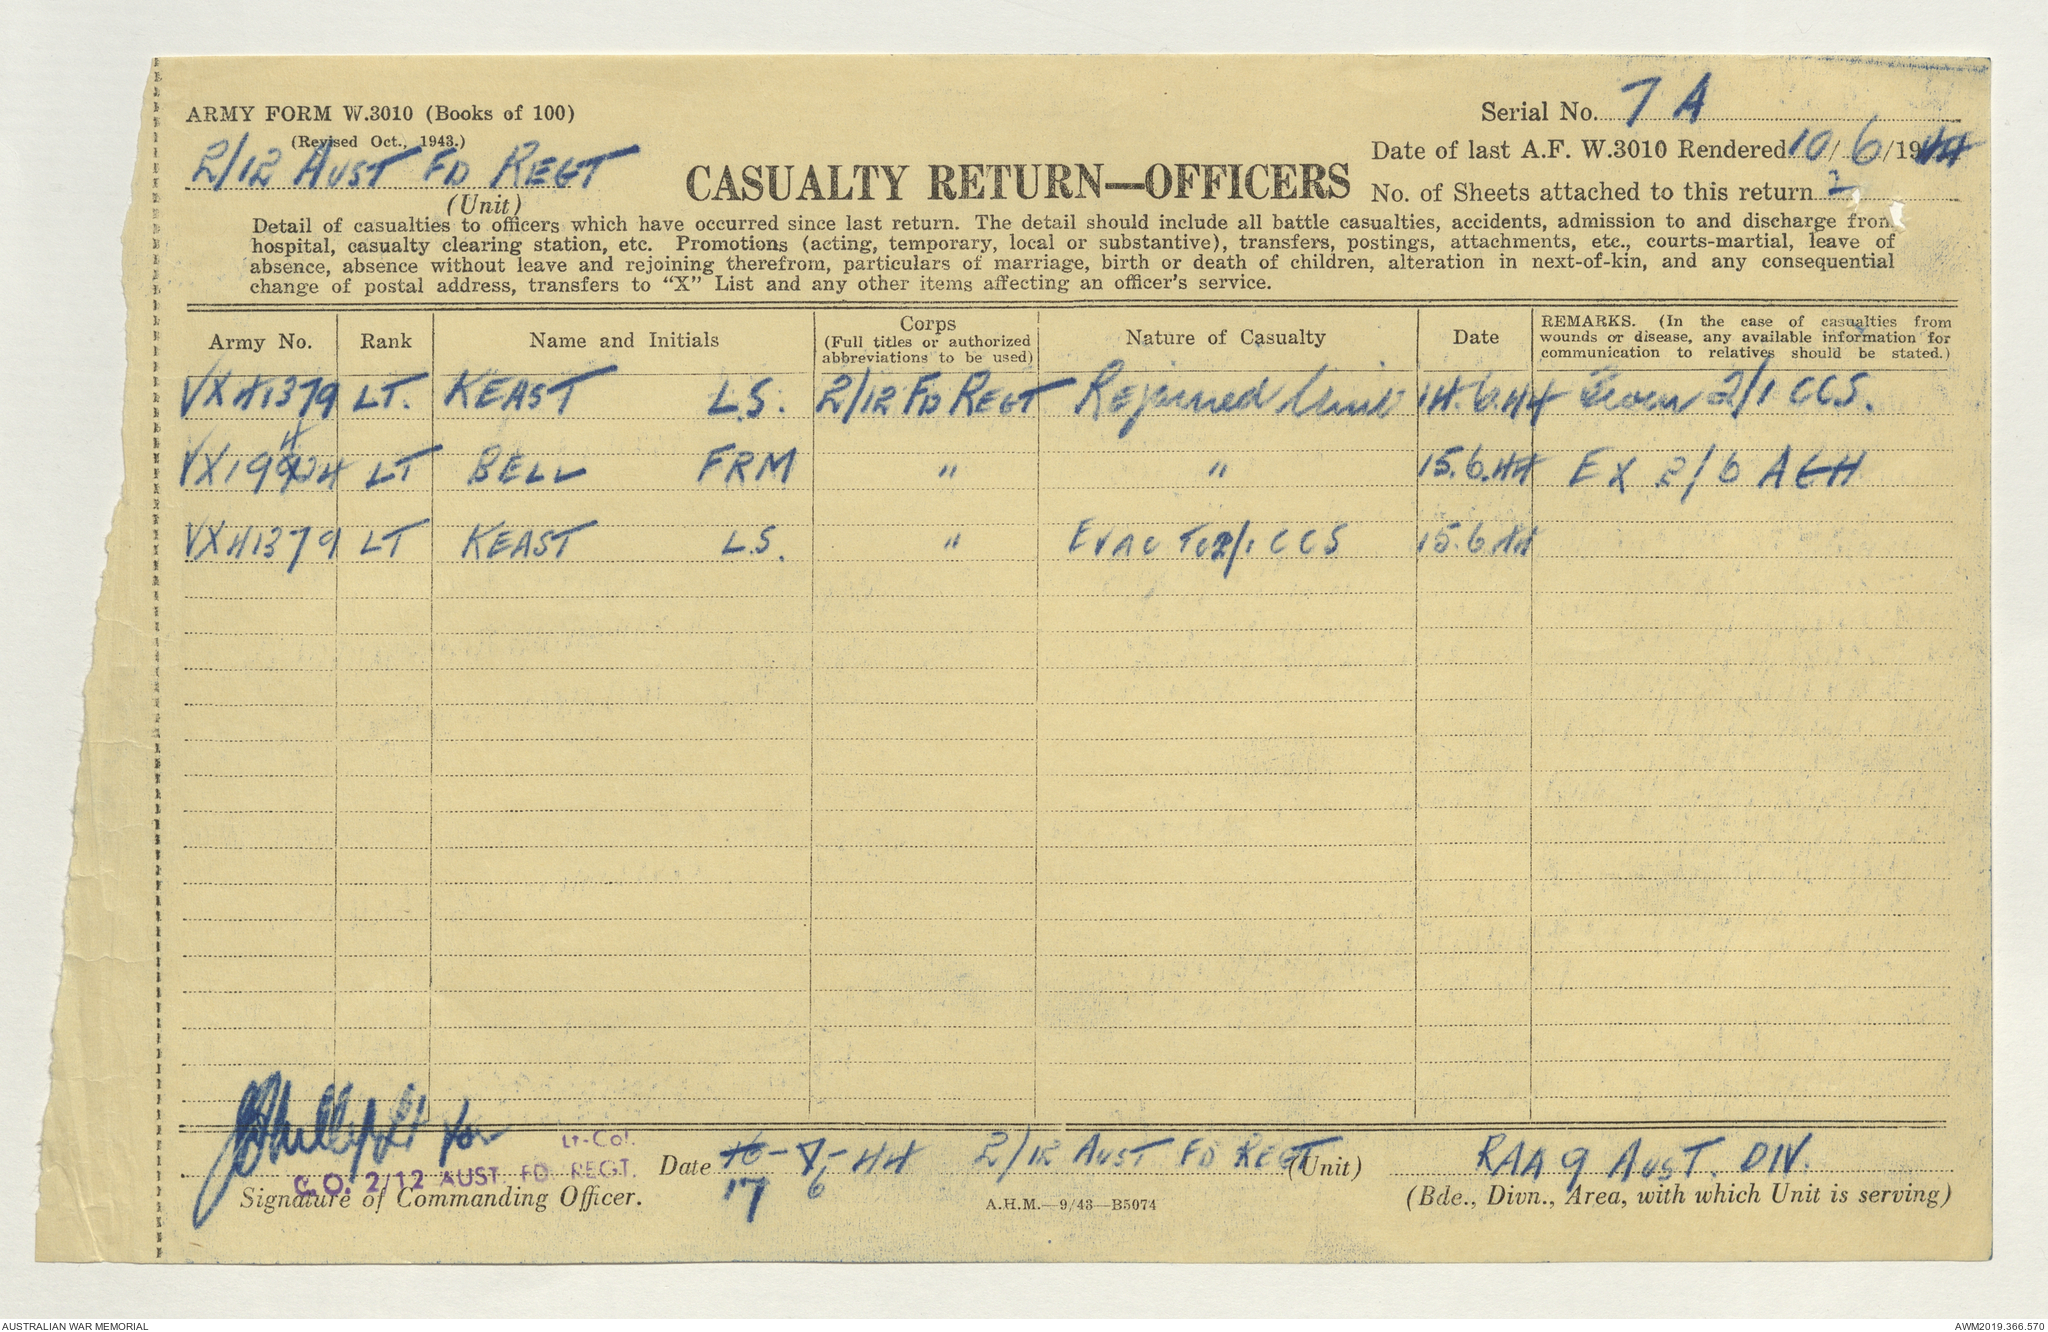 ARMY FORM W.3010 (Books of 100)
(Revised Oct., 1943.)
2/12 AUST FD REGT
(Unit)
CASUALTY RETURN—OFFICERS
Serial No. 7 A
Date of last A.F. W.3010 Rendered 10/6/1944
No. of Sheets attached to this return 2
Detail of casualties to officers which have occurred since last return. The detail should include all battle casualties, accidents, admission to and discharge from
hospital, casualty clearing station, etc. Promotions (acting, temporary, local or substantive), transfers, postings, attachments, etc., courts-martial, leave of
absence, absence without leave and rejoining therefrom, particulars of marriage, birth or death of children, alteration in next-of-kin, and any consequential
change of postal address, transfers to “X” List and any other items affecting an officer's service.
Army No. Rank Name and Initials Corps (Full titles or authorized abbreviations to be used) Nature of Casualty Date REMARKS. (In the case of casualties from wounds or disease, any available information for communication to relatives should be stated.)
VX41379 LT. KEAST L.S. 2/12 FD REGT Rejoined Unit 14.6.44 From 2/1 CCS.
VX19924 LT BELL FRM " " 15.6.44 EX 2/6 AGH
4
VX41379 LT KEAST L.S. " EVAC TO 2/1 CCS 15.6.44
Lt for
Lt-Col.
C.O. 2/12 AUST. FD. REGT.
Signature of Commanding Officer.
Date 16-7-44
17 6
2/12 AUST FD REGT (Unit)
RAA 9 AUST. DIV.
(Bde., Divn., Area, with which Unit is serving)
A.H.M.—9/43—B5074
AUSTRALIAN WAR MEMORIAL
AWM2019.366.570